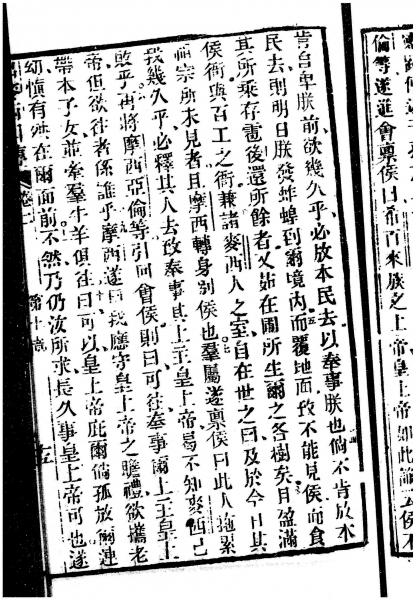 倫等遂進會禀侯曰希百來族之上帝皇上帝如此諭云侯
肯自卑朕前欲幾久乎必放本民去以奉事朕也倘不肯放本
民去則明日朕發蚱蜢到爾境內而覆地面致不能見侯而食
其所乘存雹後還所餘者又茹在圃所生爾之各樹矣且盈滿
侯衙與百工之衙兼諸麥西人之室自在世之日及於今日其
祖宗所未見者且摩西轉身別侯也羣屬遂禀侯曰此人拖累
我幾久乎必釋其人去致奉事其上主皇上帝曷不知麥西已
敗乎再將摩西亞倫等引回會侯則曰可往奉事爾上主皇上
帝但欲往者係誰乎摩西遂曰我應守皇上帝之瞻禮欲攜老
帶本子女並羣羣牛羊俱往曰可以皇上帝庇爾倘孤放爾連
幼慎有殃在爾面前不然乃仍汝所求長久事皇上帝可也遂
第十章